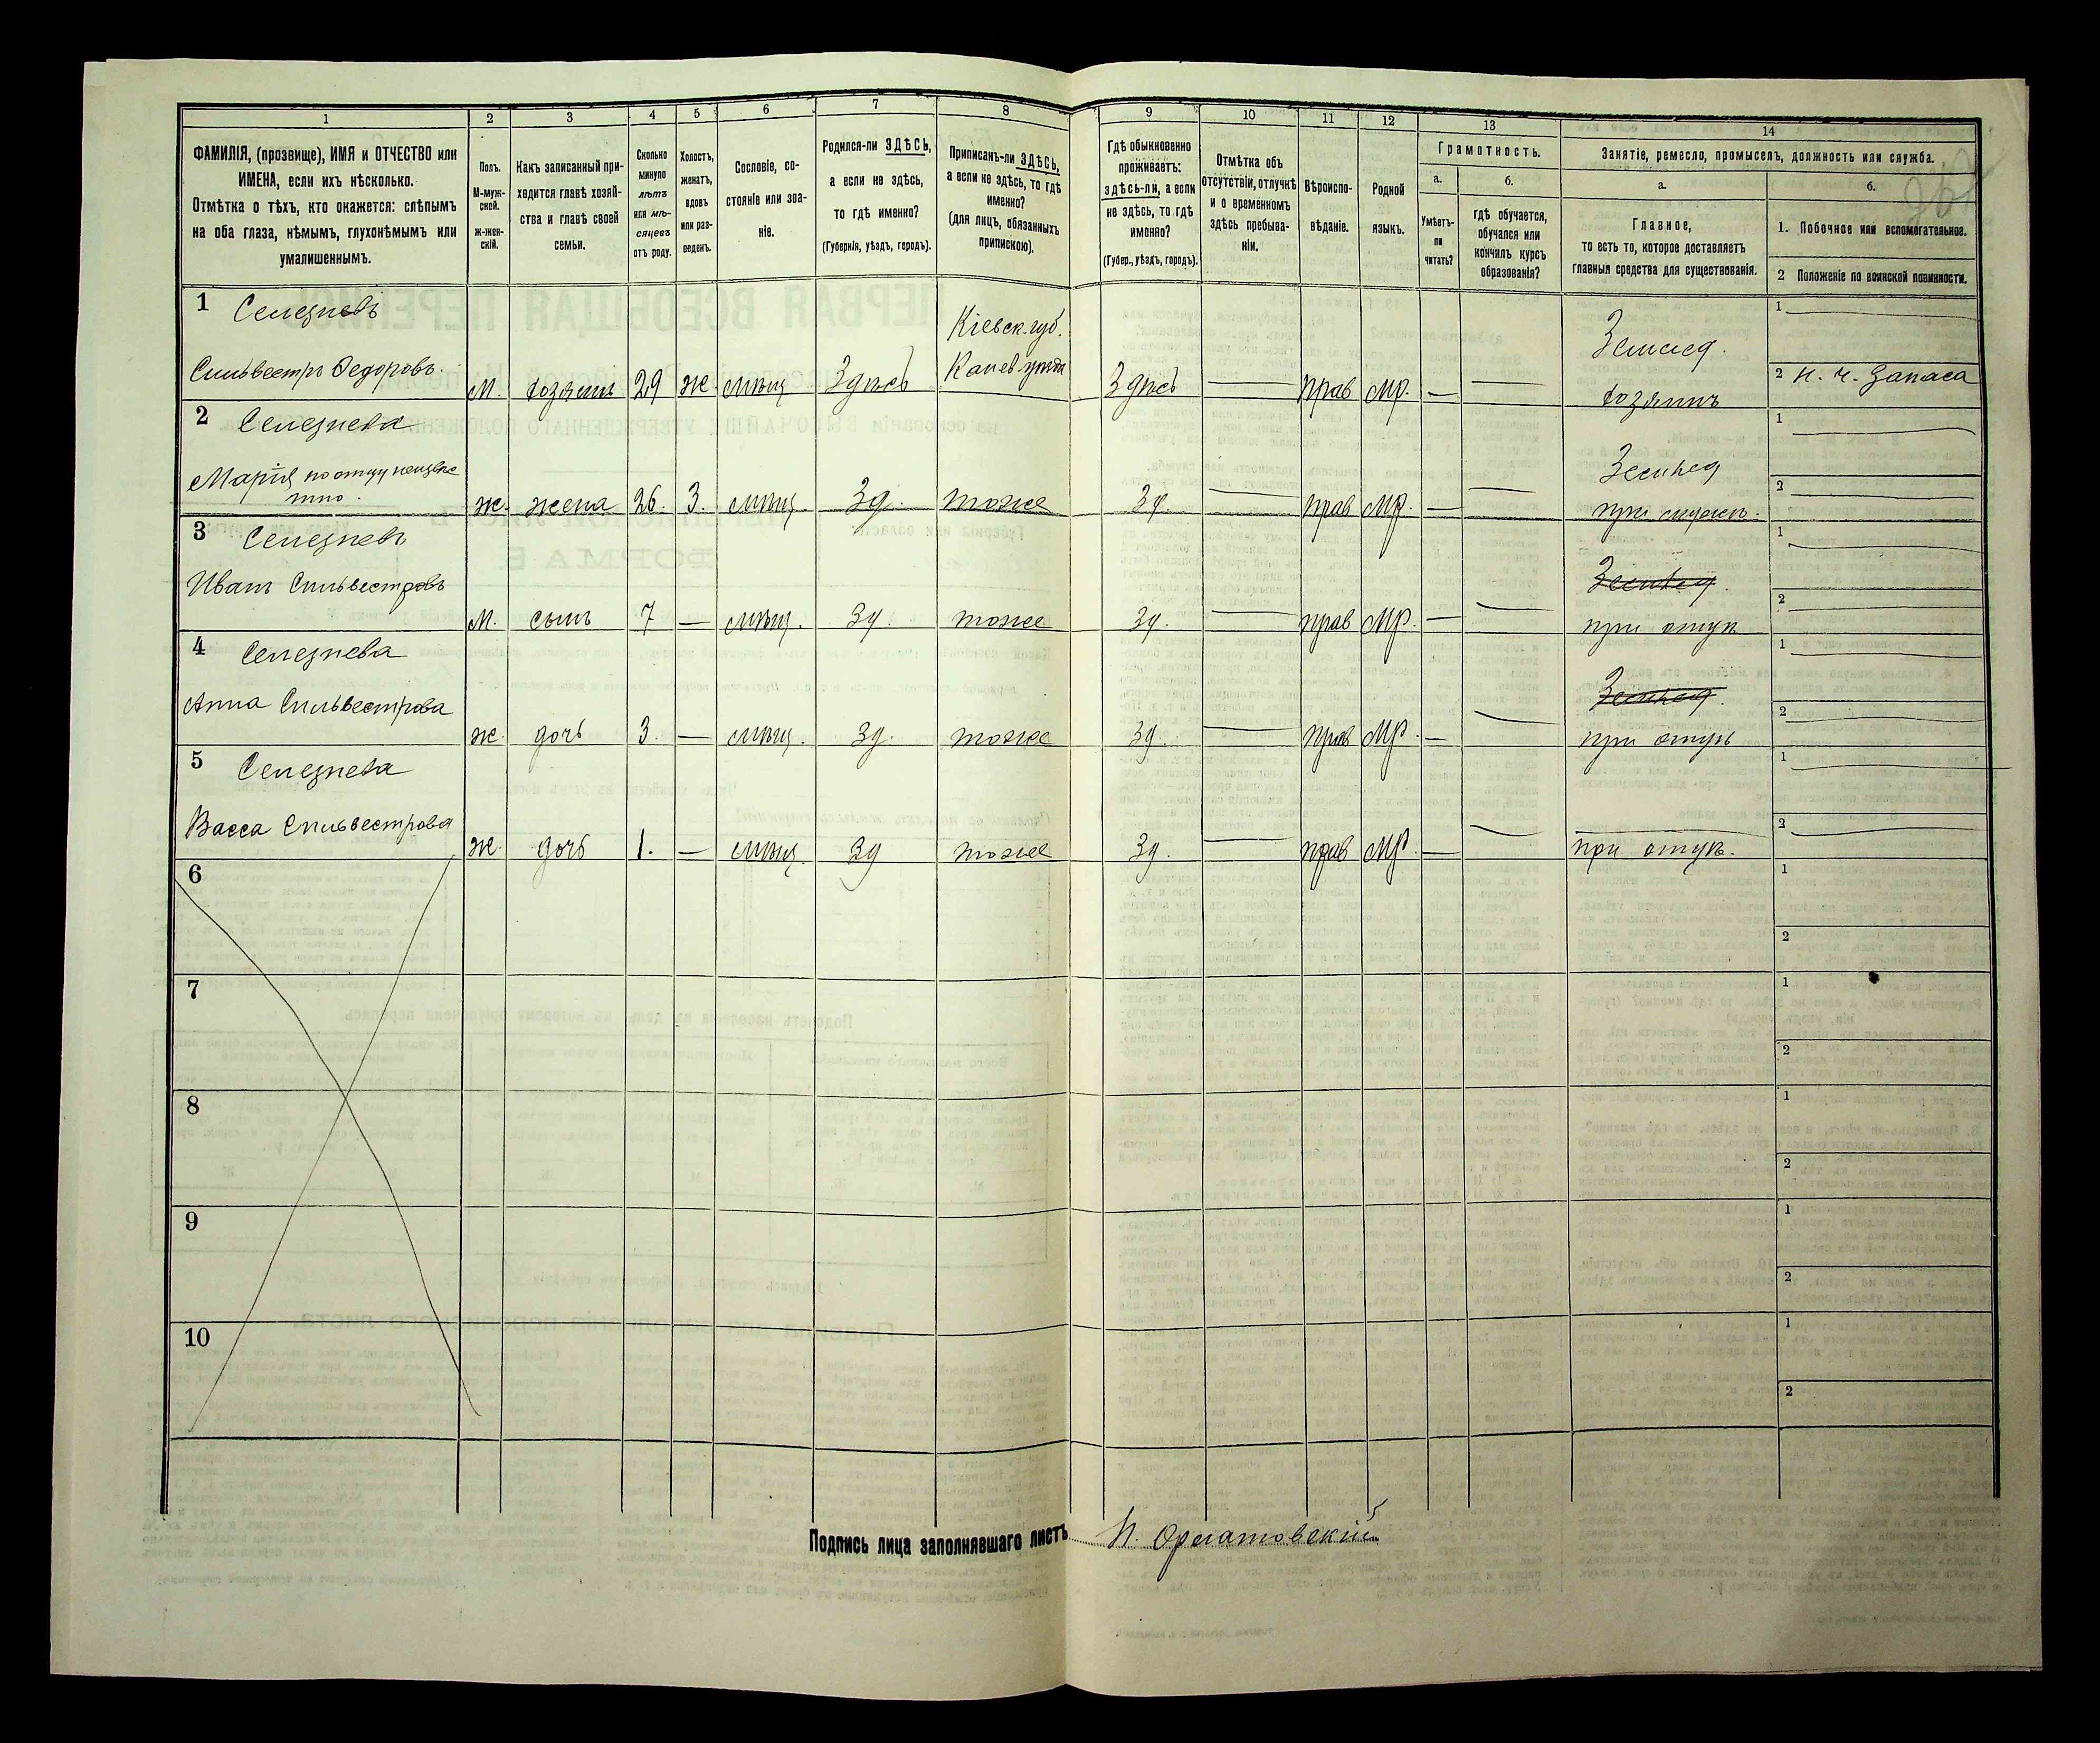 1 2 3 4 5 6 7 8 9 10 11 12 13 14
ФАМИЛІЯ, (прозвище), ИМЯ и ОТЧЕСТВО или
ИМЕНА, если ихъ нѣсколько.
Отмѣтка о тѣхъ, кто окажется: слѣпымъ
на оба глаза, нѣмымъ, глухонѣмымъ или
умалишеннымъ.
Полъ.
М-муж-
ской.
ж-жен-
скій.
Какъ записанный при-
ходится главѣ хозяй-
ства и главѣ своей
семьи.
Сколько
минуло
лѣтъ
или мѣ-
сяцевъ
отъ роду.
Холостъ,
женатъ,
вдовъ
или раз-
веденъ.
Сословіе, со-
стояніе или зва-
ніе.
Родился-ли ЗДѢСЬ,
а если не здѣсь,
то гдѣ именно?
(Губернія, уѣздъ, городъ).
Приписанъ-ли ЗДѢСЬ,
а если не здѣсь, то гдѣ
именно?
(для лицъ, обязанныхъ
припискою).
Гдѣ обыкновенно
проживаетъ:
здѣсь-ли, а если
не здѣсь, то гдѣ
именно?
(Губер., уѣздъ, городъ).
Отмѣтка объ
отсутствіи, отлучкѣ
и о временномъ
здѣсь пребыва-
ніи.
Вѣроиспо-
вѣданіе.
Родной
языкъ.
Грамотность.
а.
Умѣетъ-
ли
читать?
б.
гдѣ обучается,
обучался или
кончилъ курсъ
образованія?
Занятіе, ремесло, промыселъ, должность или служба.
а.
Главное,
то есть то, которое доставляетъ
главныя средства для существованія.
б.
1. Побочное или вспомогательное.
2 Положеніе по воинской повинности.
1 Селезневъ Кіевск. губ. Землед. 1
Сильвестръ Федоровъ. М. хозяинъ 29 ж. мѣщ. Здѣсь Канев. уѣзда Здѣсь — прав мр. — — хозяинъ 2 н. ч. запаса
2 Селезнева Землед 1
Марія по отцу неизвѣс
тно. ж. жена 26. З. мѣщ. Зд. тоже Зд. — прав мр. — — при мужѣ. 2
3 Селезневъ Землед. 1
Иванъ Сильвестровъ М. сынъ 7 — мѣщ. Зд. тоже Зд. — прав мр. — — при отцѣ 2
4 Селезнева Землед. 1
Анна Сильвестрова ж. дочь 3. — мѣщ. Зд. тоже Зд. — прав мр. — — при отцѣ 2
5 Селезнева 1
Васса Сильвестрова ж. дочь 1. — мѣщ. Зд тоже Зд. — прав мр. — — при отцѣ. 2
6 1
2
7 1
2
8 1
2
9 1
2
10 1
2
Подпись лица заполнявшаго листъ